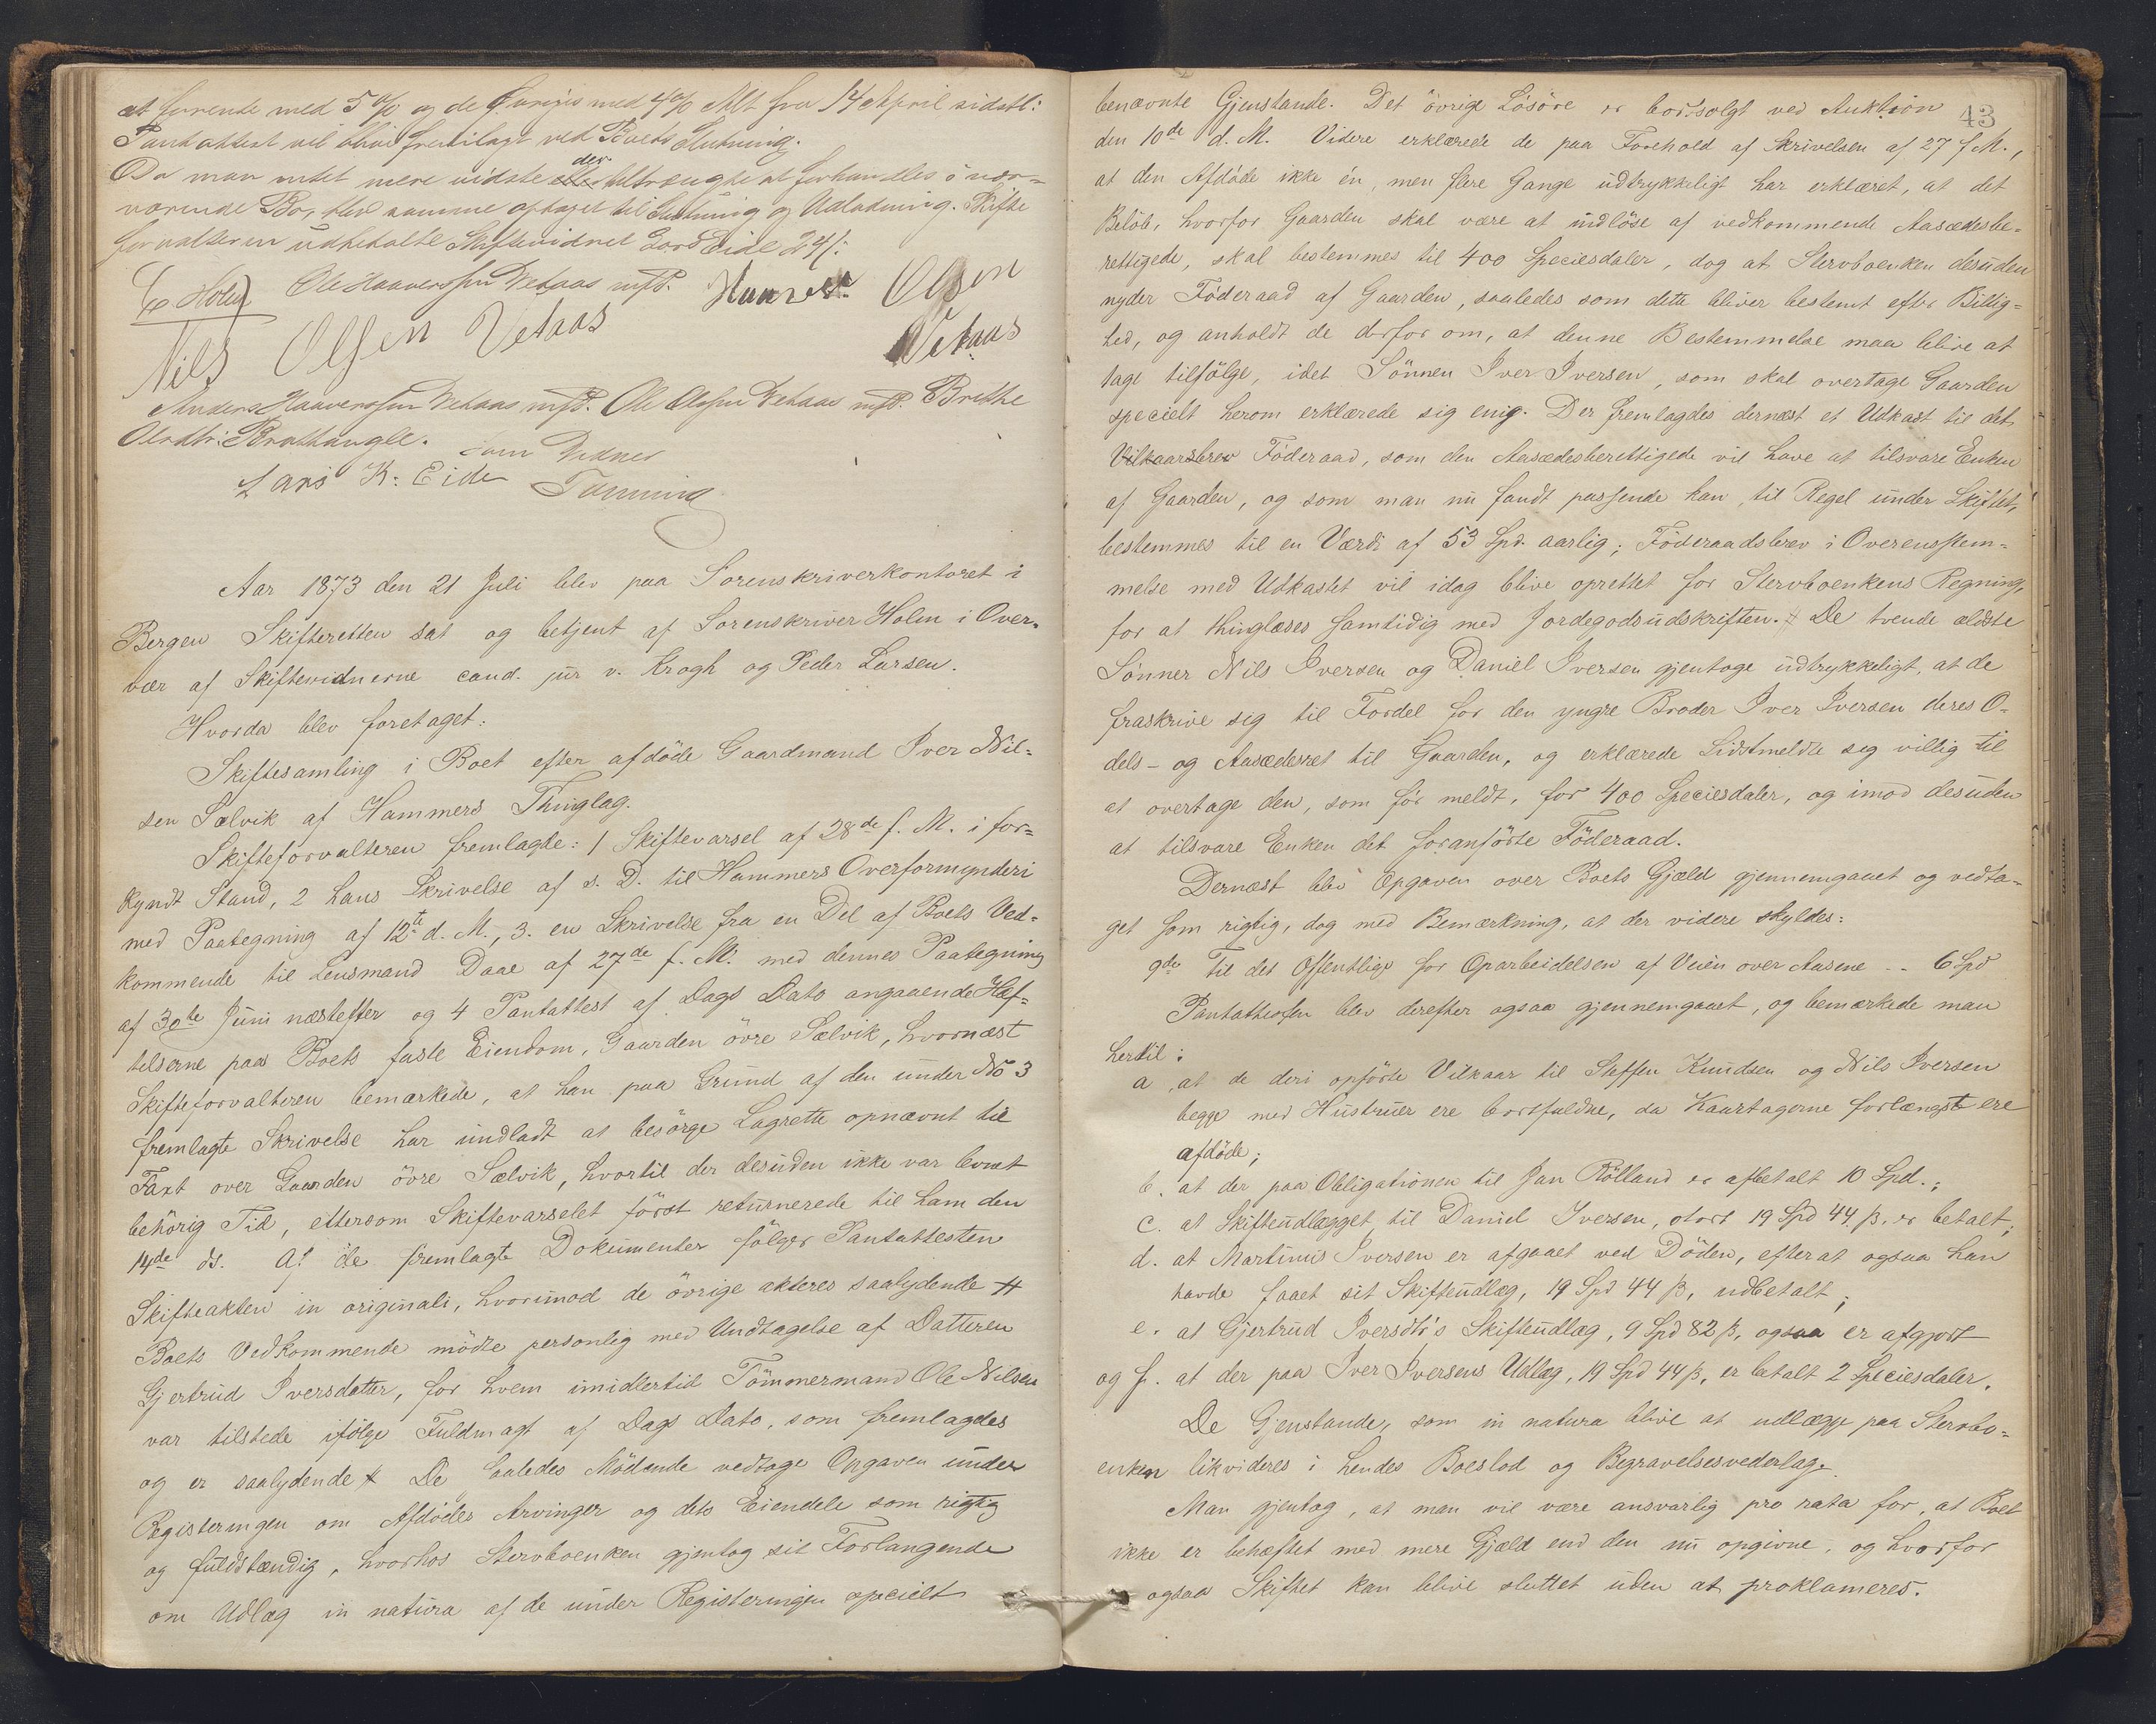 at forrente med 5 % og de Øvrige med 4 % Alt fra 14 April sidstl:
Pantattest vil blive fremlagt ved Boets Slutning.
Da man intet mere vidste der tiltrængte at forhandles i nær-
værende Bo, blev samme optaget til Slutning og Udlodning. Skifte
forvalteren udbetalte Skiftevidnet Lars Eide 24 ß.
E Holm Ole Haaverssen Vetaas mfP. Haaver Olsen
Nils Olsen Vetaas Vetaas
Anders Haaverssen Vetaas mfP. Ole Olssen Vetaas mfP. Brethe
Olsdtr: Bratthaugle.
som Vidner
Lars K: Eide Tanning
Aar 1873 den 21 Juli blev paa Sorenskriverkontoret i
Bergen Skifteretten sat og betjent af Sorenskriver Holm i Over-
vær af Skiftevidnerne cand. jur v. Krogh og Peder Larsen.
Hvorda blev foretaget:
Skiftesamling i Boet efter afdöde Gaardmand Iver Nil-
sen Sælvik af Hammers Thinglag.
Skifteforvalteren fremlagte: 1 Skiftevarsel af 28de f. M. i for-
kyndt Stand, 2 hans Skrivelse af s. D. til Hammers Overformynderi
med Paategning af 12te d. M., 3. en Skrivelse fra en Del af Boets Ved-
kommende til Lensmand Daae af 27de f. M. med dennes Paategning
af 30te Juni næstefter og 4 Pantattest af Dags Dato angaaende Hæf-
telserne paa Boets faste Eiendom, Gaarden övre Sælvik, hvornæst
Skifteforvalteren bemærkede, at han paa Grund af den under No 3
fremlagte Skrivelse har undladt at besörge Lagrette opnævnt til
Taxt over Gaarden övre Sælvik, hvortil der desuden ikke var levnet
behörig Tid, eftersom Skiftevarselet först returnerede til ham den
14de ds. Af de fremlagte Dokumenter fölger Pantattesten
Skifteakten in originali, hvorimod de övrige akteres saalydende #
Boets Vedkommende mödte personlig med Undtagelse af Datteren
Gjertrud Iversdatter, for hvem imidlertid Tömmermand Ole Nilsen
var tilstede ifölge Fuldmagt af Dags Dato, som fremlagdes
og er saalydende # De saaledes Mödende vedtage Opgaven under
Registeringen om Afdödes Arvinger og dets Eiendele som rigtig
og fuldstændig, hvorhos Stervboenken gjentog sit Forlangende
om Udlæg in natura af de under Registeringen specielt
43
benævnte Gjenstande. Det övrige Lösöre er bortsolgt ved Auktion
den 10de d. M. Videre erklærede de paa Forehold af Skrivelsen af 27 f. M.,
at den Afdöde ikke én, men flere Gange udtrykkeligt har erklæret, at det
Belöb, hvorfor Gaarden skal være at indlöse af vedkommende Aasædesbe-
rettigede, skal bestemmes til 400 Speciesdaler, dog at Stervboenken desuden
nyder Föderaad af Gaarden, saaledes som dette bliver bestemt efter Billig-
hed, og anholdt de derfor om, at denne Bestemmelse maa blive at
tage tilfölge, idet Sönnen Iver Iversen, som skal overtage Gaarden
specielt herom erklærede sig enig. Der fremlagdes dernæst et Udkast til det
Vilkaarsbrev Föderaad, som den Aasædesberettigede vil have at tilsvare Enken
af Gaarden, og som man nu fandt passende kan, til Regel under Skiftet,
bestemmes til en Værdi af 53 Spd. aarlig; Föderaadsbrev i Overensstem-
melse med Udkastet vil idag blive oprettet for Stervboenkens Regning,
for at thinglæses samtidig med Jordegodsudskriften. # De tvende ældste
Sönner Nils Iversen og Daniel Iversen gjentoge udtrykkeligt, at de
fraskrive sig til Fordel for den yngre Broder Iver Iversen deres O-
dels- og Aasædesret til Gaarden, og erklærede Sidstmeldte sig villig til
at overtage den, som för meldt, for 400 Speciesdaler, og imod desuden
at tilsvare Enken det foranförte Föderaad.
Dernæst blev Opgaven over Boets Gjæld gjennemgaaet og vedta-
get som rigtig, dog med Bemærkning, at der videre skyldes:
9de Til det Offentlige for Oparbeidelsen af Veien over Aasene -- 6 Spd
Pantattesten blev derefter ogsaa gjennemgaaet, og bemærkede man
hertil:
a. at de deri opförte Vilkaar til Steffen Knudsen og Nils Iversen
begge med Hustruer ere bortfaldne, da Kaartagerne forlængst ere
afdöde;
b. at der paa Obligationen til Jan Rölland er afbetalt 10 Spd.;
c. at Skifteudlægget til Daniel Iversen, stort 19 Spd 44 ß, er betalt;
d. at Martinus Iversen er afgaaet ved Döden, efterat ogsaa han
havde faaet sit Skifteudlæg, 19 Spd 44 ß, udbetalt;
e. at Gjertrud Iversdtr's Skifteudlæg, 9 Spd 82 ß, ogsaa er afgjort
og f. at der paa Iver Iversens Udlæg, 19 Spd 44 ß, er betalt 2 Speciesdaler.
De Gjenstande, som in natura blive at udlægge paa Stervbo-
enken likvideres i hendes Boeslod og Begravelsesvederlag.
Man gjentog, at man vil være ansvarlig pro rata for, at Boet
ikke er behæftet med mere Gjæld end den nu opgivne, og hvorfor
ogsaa Skiftet kan blive sluttet uden at proklameres.